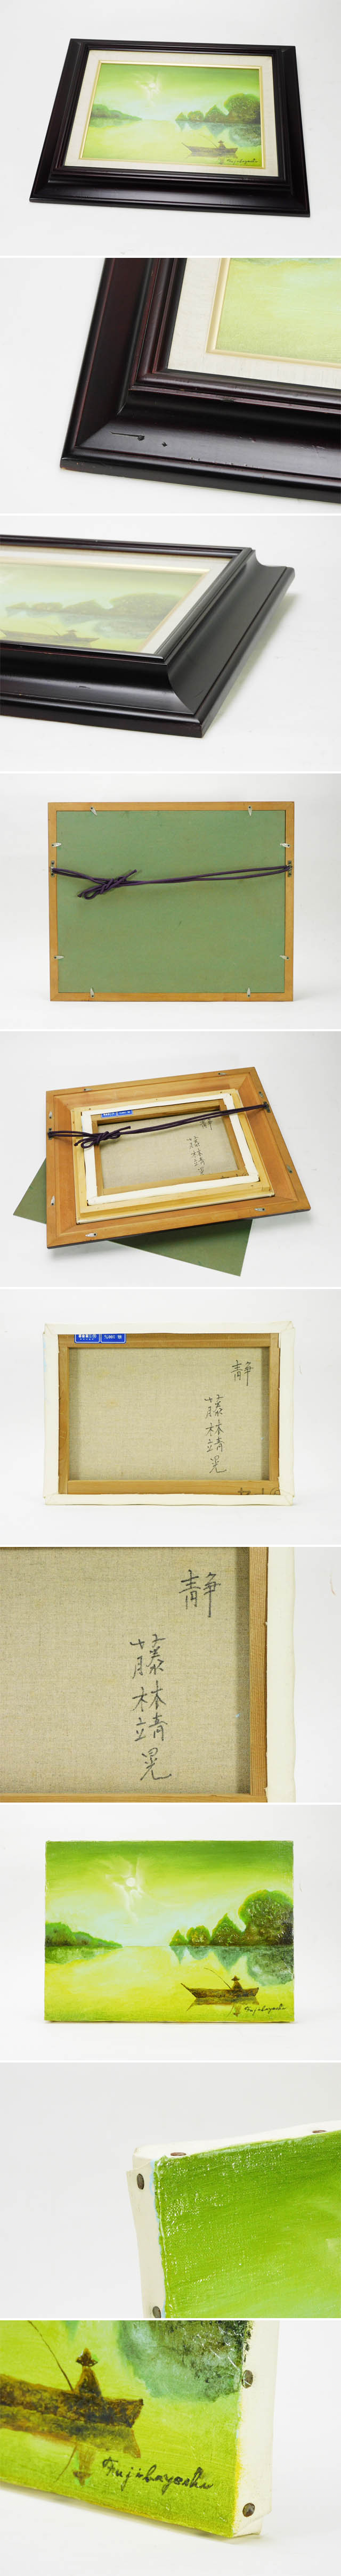 Fujibayashi
静
藤林靖晃
静
藤林靖晃
静
藤林靖晃
Fujibayashi
Fujibayashi